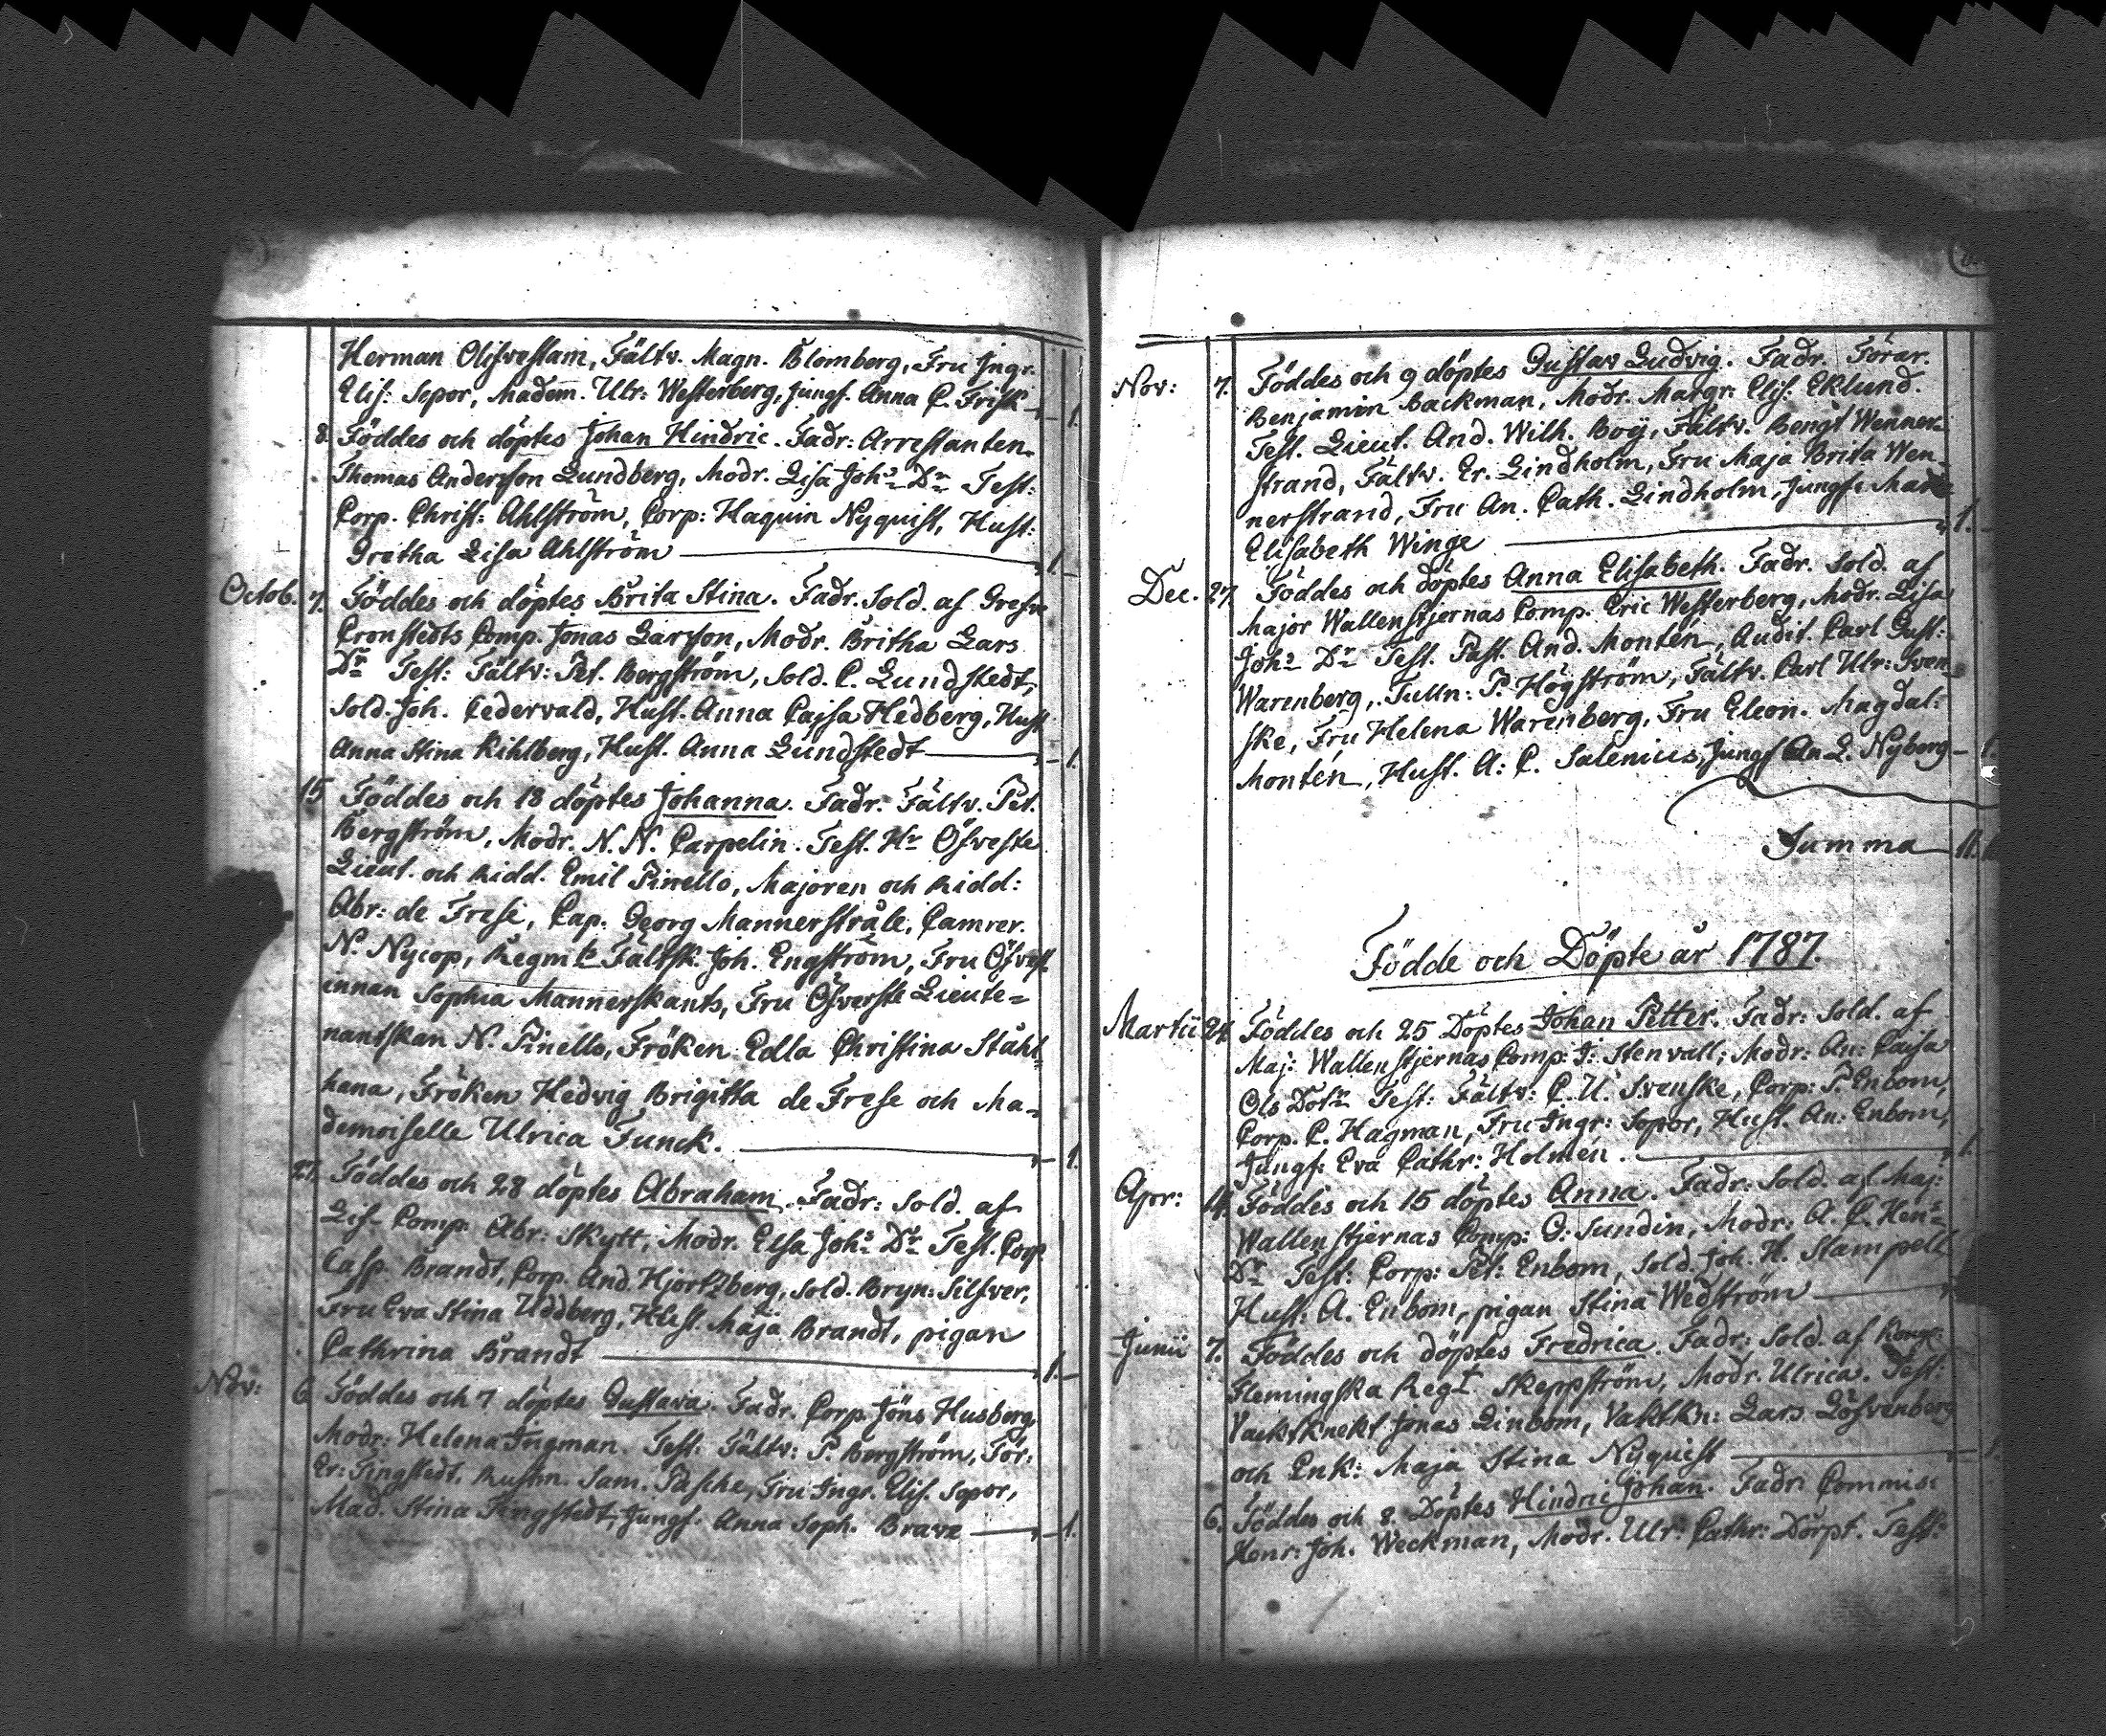 Herman Olifvestam, Fältv. Magn. Blomberg, Fru Jngr.
Elis: Sepor, Madem. Ulr: Westerberg, Jungf. Anna C. Frisk — 1.
8. Föddes och döptes Johan Hindric. Fadr: Arrestanten
Thomas Andersson Lundberg, Modr. Lisa Johs Dr Test:
Corp. Christ: Ahlström, Corp: Haquin Nyquist, Hust:
Gretha Lisa Ahlström — 1.
Octob. 7. Föddes och döptes Brita Stina. Fadr. Sold. af Grefve
Cronstedts Comp. Jonas Larsson, Modr. Britha Lars
Dr Test: Fältv: Pet. Bergström, Sold. C. Lundstedt,
Sold. Joh. Cedervald, Hust. Anna Cajsa Hedberg, Hust
Anna Stina Kihlberg, Hust. Anna Lundstedt — 1.
15 Föddes och 18 döptes Johanna. Fadr. Fältv. Pet.
Bergström, Modr. N. N. Carpelin. Test. Hr Öfveste
Lieut. och Ridd. Emil Pinello, Majoren och Ridd:
Abr: de Frese, Cap. Georg Mannerstråle, Camrer.
N. Nycop, Regmts Fältsk. Joh. Engström, Fru Öfverst
innan Sophia Mannerskants, Fru Öfverste Lieute=
nantskan N. Pinello, Fröken Edla Christina Stålh
hana, Fröken Hedvig Brigitta de Frese och Ma=
demoiselle Ulrica Funck. — 1.
27. Föddes och 28 döptes Abraham. Fadr: Sold. af
Lif- Comp. Abr: Skytt, Modr. Elsa Johs Dr Test. Corp
Casp. Brandt, Corp. And. Hjortzberg, Sold. Bryn: Silfver,
Fru Eva Stina Uddberg, Hust. Maja Brandt, pigan
Cathrina Brandt — 1.
Nov: 6 Föddes och 7 döptes Gustava. Fadr. Corp. Jöns Husberg,
Modr: Helena Jngman. Test: Fältv: P. Bergström, För:
Er: Tingstedt, Rustm. Sam. Pasche, Fru Jngr. Elis. Sepor,
Mad. Stina Tingstedt, Jungf. Anna Soph. Brave — 1.
Nov: 7. Föddes och 9 döptes Gustav Ludvig. Fadr. Förar.
Benjamin Backman, Modr. Margr. Elis: Eklund.
Test. Lieut. And. Wilh. Boÿ, Fältv. Bengt Wenner=
strand, Fältv. Er. Lindholm, Fru Maja Brita Wen=
nerstrand, Fru An. Cath. Lindholm, Jungfr Maria
Elisabeth Winge — 1.
Dec. 27 Föddes och döptes Anna Elisabeth. Fadr. Sold. af
Major Wallenstjernas Comp. Eric Westerberg, Modr. Lisa
Johs Dr Test. Past. And. Montén, Audit. Carl Gust:
Warenberg, Tulln: P. Högström, Fältv. Carl Ulr: Sven=
ske, Fru Helena Warenberg, Fru Eleon. Magdal:
Montén, Hust. A: C. Salenius, Jungf An L. Nyberg —
Summa 11.
Födde och Döpte år 1787.
Martii 24. Föddes och 25 Döptes Johan Petter. Fadr: Sold. af
Maj: Wallenstjernas Comp: J: Stenvall; Modr: An: Caisa
Ols Dotr Test: Fältv: C. U. Svenske, Corp: P. Enbom,
Corp. C. Hagman, Fru Jngr: Sepor, Hust. An: Enbom,
Jungf: Eva Cathr: Holmén. — 1.
Apr: 14. Föddes och 15 döptes Anna. Fadr: Sold. af Maj:
Wallenstjernas Comp: O: Sundin, Modr: A. C. Hens
Dr Test: Corp: Pet: Enbom, Sold. Joh. H. Stampell
Hust: A. Enbom, pigan Stina Wedström —
Junii 7. Föddes och döptes Fredrica. Fadr: Sold. af
Flemingska Regt. Skeppström, Modr. Ulrica. Test:
Vacktknekt Jonas Linbom, Vaktkn: Lars Löfvenberg
och Enk: Maja Stina Nyquist — 1.
6. Föddes och 8. Döptes Hindric Johan. Fadr: Commis:
Henr: Joh. Weckman, Modr. Ulr: Cathr: Dörpt. Test: